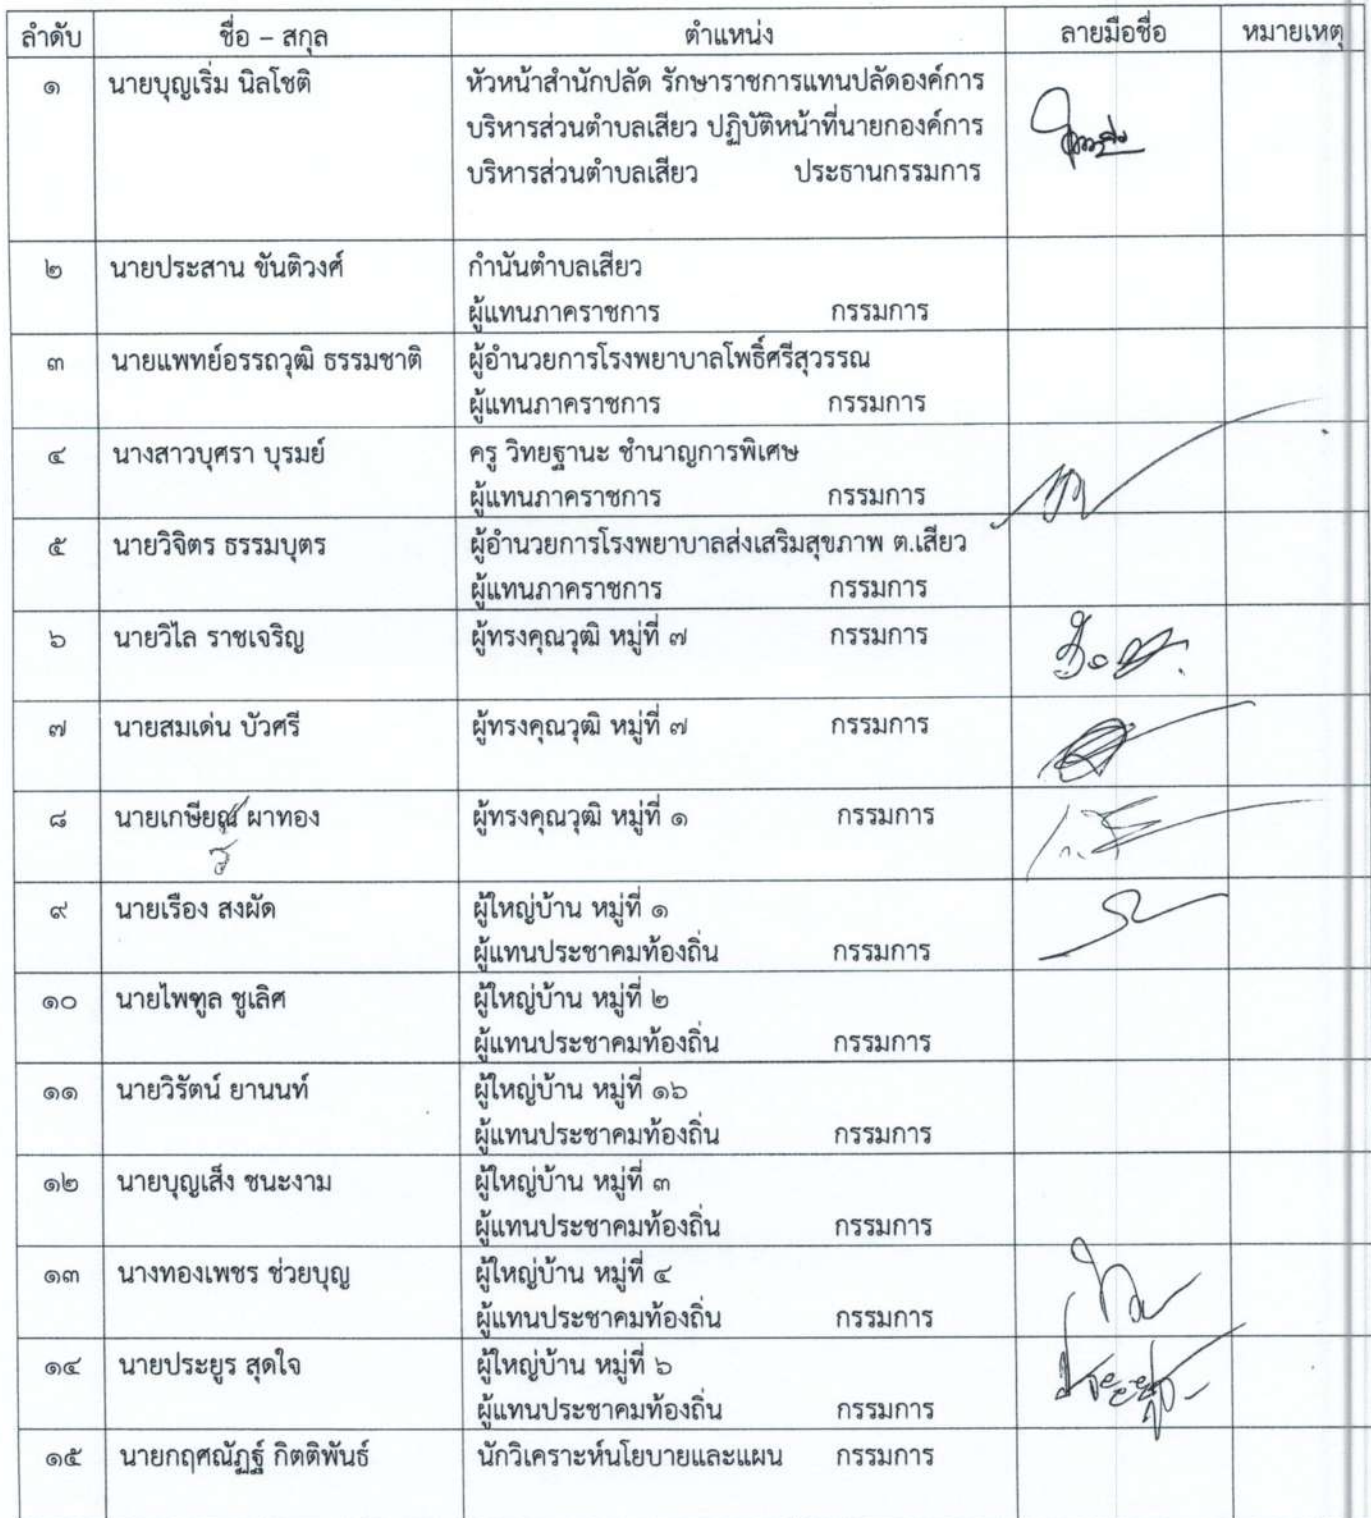 ลำดับ ชื่อ – สกุล ตำแหน่ง ลายมือชื่อ หมายเหตุ
๑ นายบุญเริ่ม นิลโชติ หัวหน้าสำนักปลัด รักษาราชการแทนปลัดองค์การ
บริหารส่วนตำบลเสียว ปฏิบัติหน้าที่นายกองค์การ
บริหารส่วนตำบลเสียว ประธานกรรมการ
๒ นายประสาน ขันติวงศ์ กำนันตำบลเสียว
ผู้แทนภาคราชการ กรรมการ
๓ นายแพทย์อรรถวุฒิ ธรรมชาติ ผู้อำนวยการโรงพยาบาลโพธิ์ศรีสุวรรณ
ผู้แทนภาคราชการ กรรมการ
๔ นางสาวบุศรา บุรมย์ ครู วิทยฐานะ ชำนาญการพิเศษ
ผู้แทนภาคราชการ กรรมการ
๕ นายวิจิตร ธรรมบุตร ผู้อำนวยการโรงพยาบาลส่งเสริมสุขภาพ ต.เสียว
ผู้แทนภาคราชการ กรรมการ
๖ นายวิไล ราชเจริญ ผู้ทรงคุณวุฒิ หมู่ที่ ๗ กรรมการ
๗ นายสมเด่น บัวศรี ผู้ทรงคุณวุฒิ หมู่ที่ ๗ กรรมการ
๘ นายเกษียณ ผาทอง ผู้ทรงคุณวุฒิ หมู่ที่ ๑ กรรมการ
ร
๙ นายเรือง สงผัด ผู้ใหญ่บ้าน หมู่ที่ ๑
ผู้แทนประชาคมท้องถิ่น กรรมการ
๑๐ นายไพฑูล ชูเลิศ ผู้ใหญ่บ้าน หมู่ที่ ๒
ผู้แทนประชาคมท้องถิ่น กรรมการ
๑๑ นายวิรัตน์ ยานนท์ ผู้ใหญ่บ้าน หมู่ที่ ๑๖
ผู้แทนประชาคมท้องถิ่น กรรมการ
๑๒ นายบุญเส็ง ชนะงาม ผู้ใหญ่บ้าน หมู่ที่ ๓
ผู้แทนประชาคมท้องถิ่น กรรมการ
๑๓ นางทองเพชร ช่วยบุญ ผู้ใหญ่บ้าน หมู่ที่ ๔
ผู้แทนประชาคมท้องถิ่น กรรมการ
๑๔ นายประยูร สุดใจ ผู้ใหญ่บ้าน หมู่ที่ ๖
ผู้แทนประชาคมท้องถิ่น กรรมการ
๑๕ นายกฤศณัฏฐ์ กิตติพันธ์ นักวิเคราะห์นโยบายและแผน กรรมการ